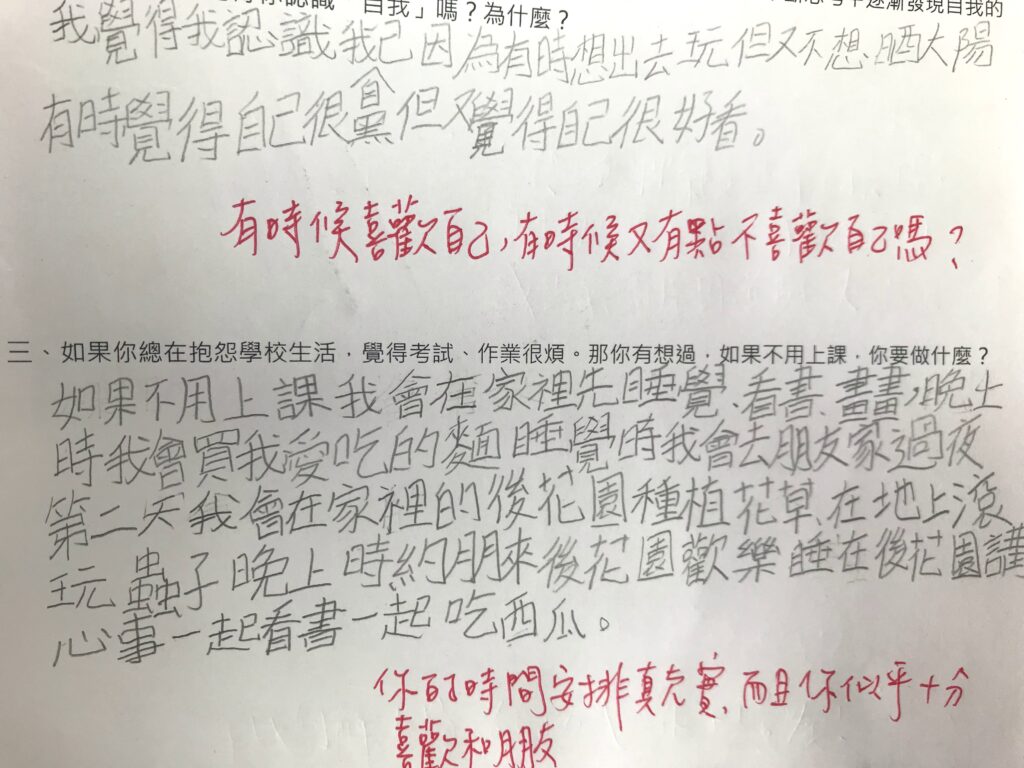 你認識「自我」嗎？為什麼？
逐漸發現自我的
我覺得我認識我己因為有時想出去玩但又不想晒大陽
有時覺得自己很黨但又覺得自己很好看。
有時候喜歡自己,有時候又有點不喜歡自己嗎？
三、如果你總在抱怨學校生活，覺得考試、作業很煩。那你有想過，如果不用上課，你要做什麼？
如果不用上課我會在家裡先睡覺、看書、畫畫,晚上
時我會買我愛吃的麵睡覺時我會去朋友家過夜
第二天我會在家裡的後花園種植花草、在地上滾、
玩蟲子晚上時約朋來後花園歡樂睡在後花園講
心事一起看書一起吃西瓜。
你的時間安排真充實,而且你似乎十分
喜歡和朋友